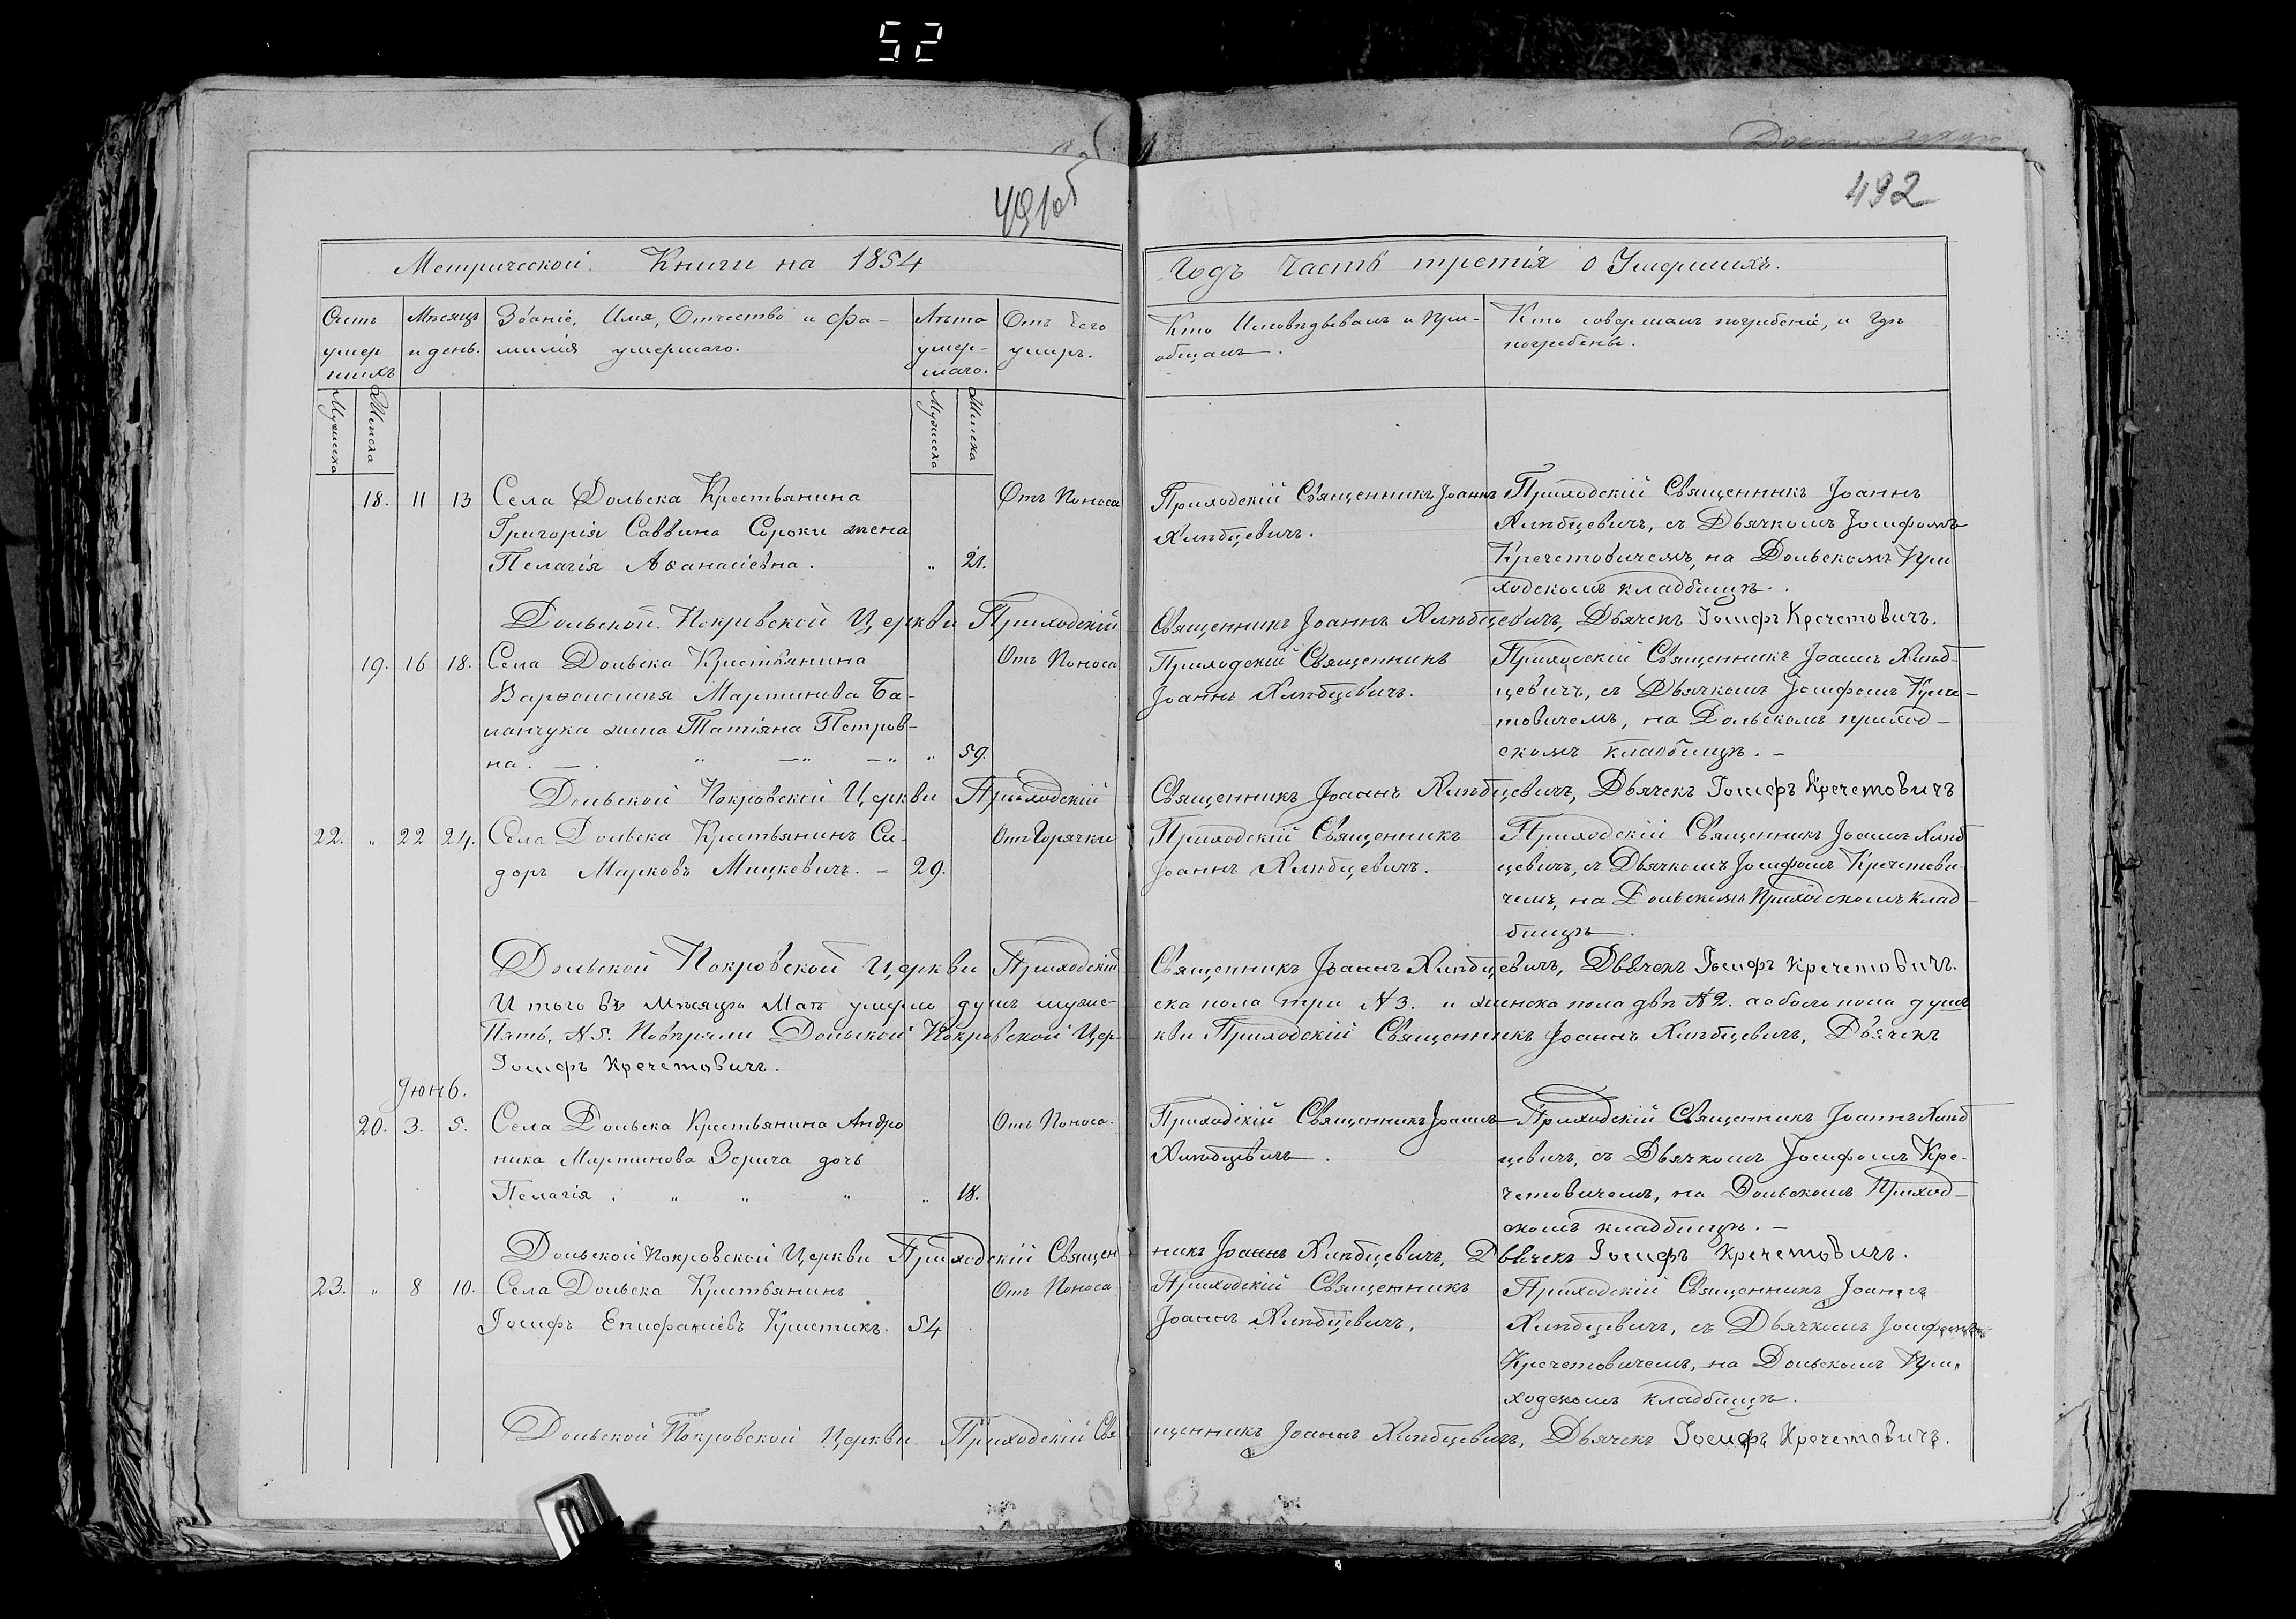 52
491об
492
Метрической Книги на 1854
Годъ Часть третія о Умершихъ.
Счетъ умер шихъ
Мѣсяцъ и день.
Званіе, Имя, Отчество и фа-
милія умершаго.
Лѣта умер- шаго.
Отъ чего умеръ.
Кто Исповѣдывалъ и при-
общалъ.
Кто совершалъ погребеніе, и гдѣ
погребены.
Мужеска
Женска
Мужеска
Женска
18. 11 13 Села Дольска Крестьянина
Григорія Саввина Сороки жена
Пелагія Аѳанасіевна. „ 21.
Отъ Поноса
Приходскій Священникъ Іоаннъ
Хлѣбцевичъ.
Приходскій Священникъ Іоаннъ
Хлѣбцевичъ, съ Дьячкомъ Іосифомъ
Кречетовичемъ, на Дольскомъ При
ходскомъ кладбищѣ.
Дольской Покровской Церкви Приходскій Священникъ Іоаннъ Хлѣбцевичъ, Дьячекъ Іосифъ Кречетовичъ.
19. 16 18. Села Дольска Крестьянина
Варѳоломея Мартинова Ба-
ланчука жена Татіяна Петров-
на. — „ — „ — „ „ 59.
Отъ Поноса
Приходскій Священникъ
Іоаннъ Хлѣбцевичъ.
Приходскій Священникъ Іоаннъ Хлѣб-
цевичъ, съ Дьячкомъ Іосифомъ Крече-
товичемъ, на Дольскомъ приход-
скомъ кладбищѣ. –
Дольской Покровской Церкви Приходскій Священникъ Іоаннъ Хлѣбцевичъ, Дьячекъ Іосифъ Кречетовичъ
22. „ 22 24. Села Дольска Крестьянинъ Си-
доръ Марковъ Мицкевичъ. – 29.
Отъ Горячки
Приходскій Священникъ
Іоаннъ Хлѣбцевичъ.
Приходскій Священникъ Іоаннъ Хлѣб
цевичъ, съ Дьячкомъ Іосифомъ Кречетови
чемъ, на Дольскомъ Приходскомъ клад-
бищѣ.
Дольской Покровской Церкви Приходскій Священникъ Іоаннъ Хлѣбцевичъ, Дьячекъ Іосифъ Кречетовичъ.
И того въ мѣсяцѣ Маѣ умерло душъ муже- ска пола три №3. и женска пола двѣ №2. а обоего пола душъ
Пять, №5. Повѣряли Дольской Покровской Цер- кви Приходскій Священникъ Іоаннъ Хлѣбцевичъ, Дьячекъ
Іосифъ Кречетовичъ.
Іюнь.
20. 3. 5. Села Дольска Крестьянина Андро
ника Мартинова Зерича дочь
Пелагія. „ „ „ „ 18.
Отъ Поноса.
Приходскій Священникъ Іоаннъ
Хлѣбцевичъ.
Приходскій Священникъ Іоаннъ Хлѣб
цевичъ, съ Дьячкомъ Іосифомъ Кре-
четовичемъ, на Дольскомъ Приход-
скомъ кладбищѣ. –
Дольской Покровской Церкви Приходскій Священ никъ Іоаннъ Хлѣбцевичъ, Дьячекъ Іосифъ Кречетовичъ.
23. „ 8 10. Села Дольска Крестьянинъ
Іосифъ Епифаніевъ Кристикъ. 54
Отъ Поноса
Приходскій Священникъ
Іоаннъ Хлѣбцевичъ,
Приходскій Священникъ Іоаннъ
Хлѣбцевичъ, съ Дьячкомъ Іосифомъ
Кречетовичемъ, на Дольскомъ При,
ходскомъ кладбищѣ.
Дольской Покровской Церкви Приходскій Свя щенникъ Іоаннъ Хлѣбцевичъ, Дьячекъ Іосифъ Кречетовичъ.